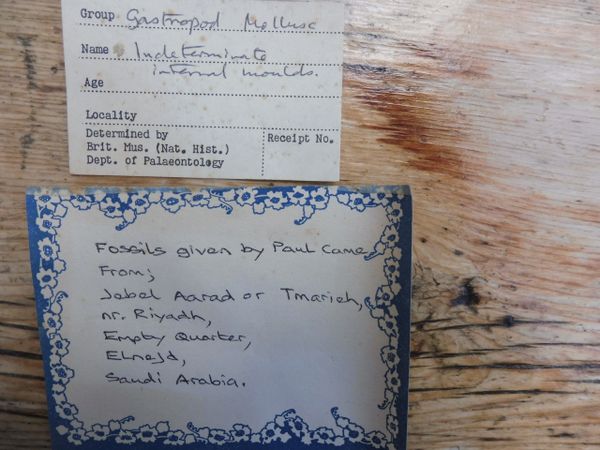 Group Gastropod Mollusc
Name Indeterminate
internal moulds.
Age
Locality
Determined by
Brit. Mus. (Nat. Hist.)
Dept. of Palaeontology
Receipt No.
Fossils given by Paul Came
From;
Jebel Aarad or Tmarieh,
nr. Riyadh,
Empty Quarter,
Elnejd,
Saudi Arabia.